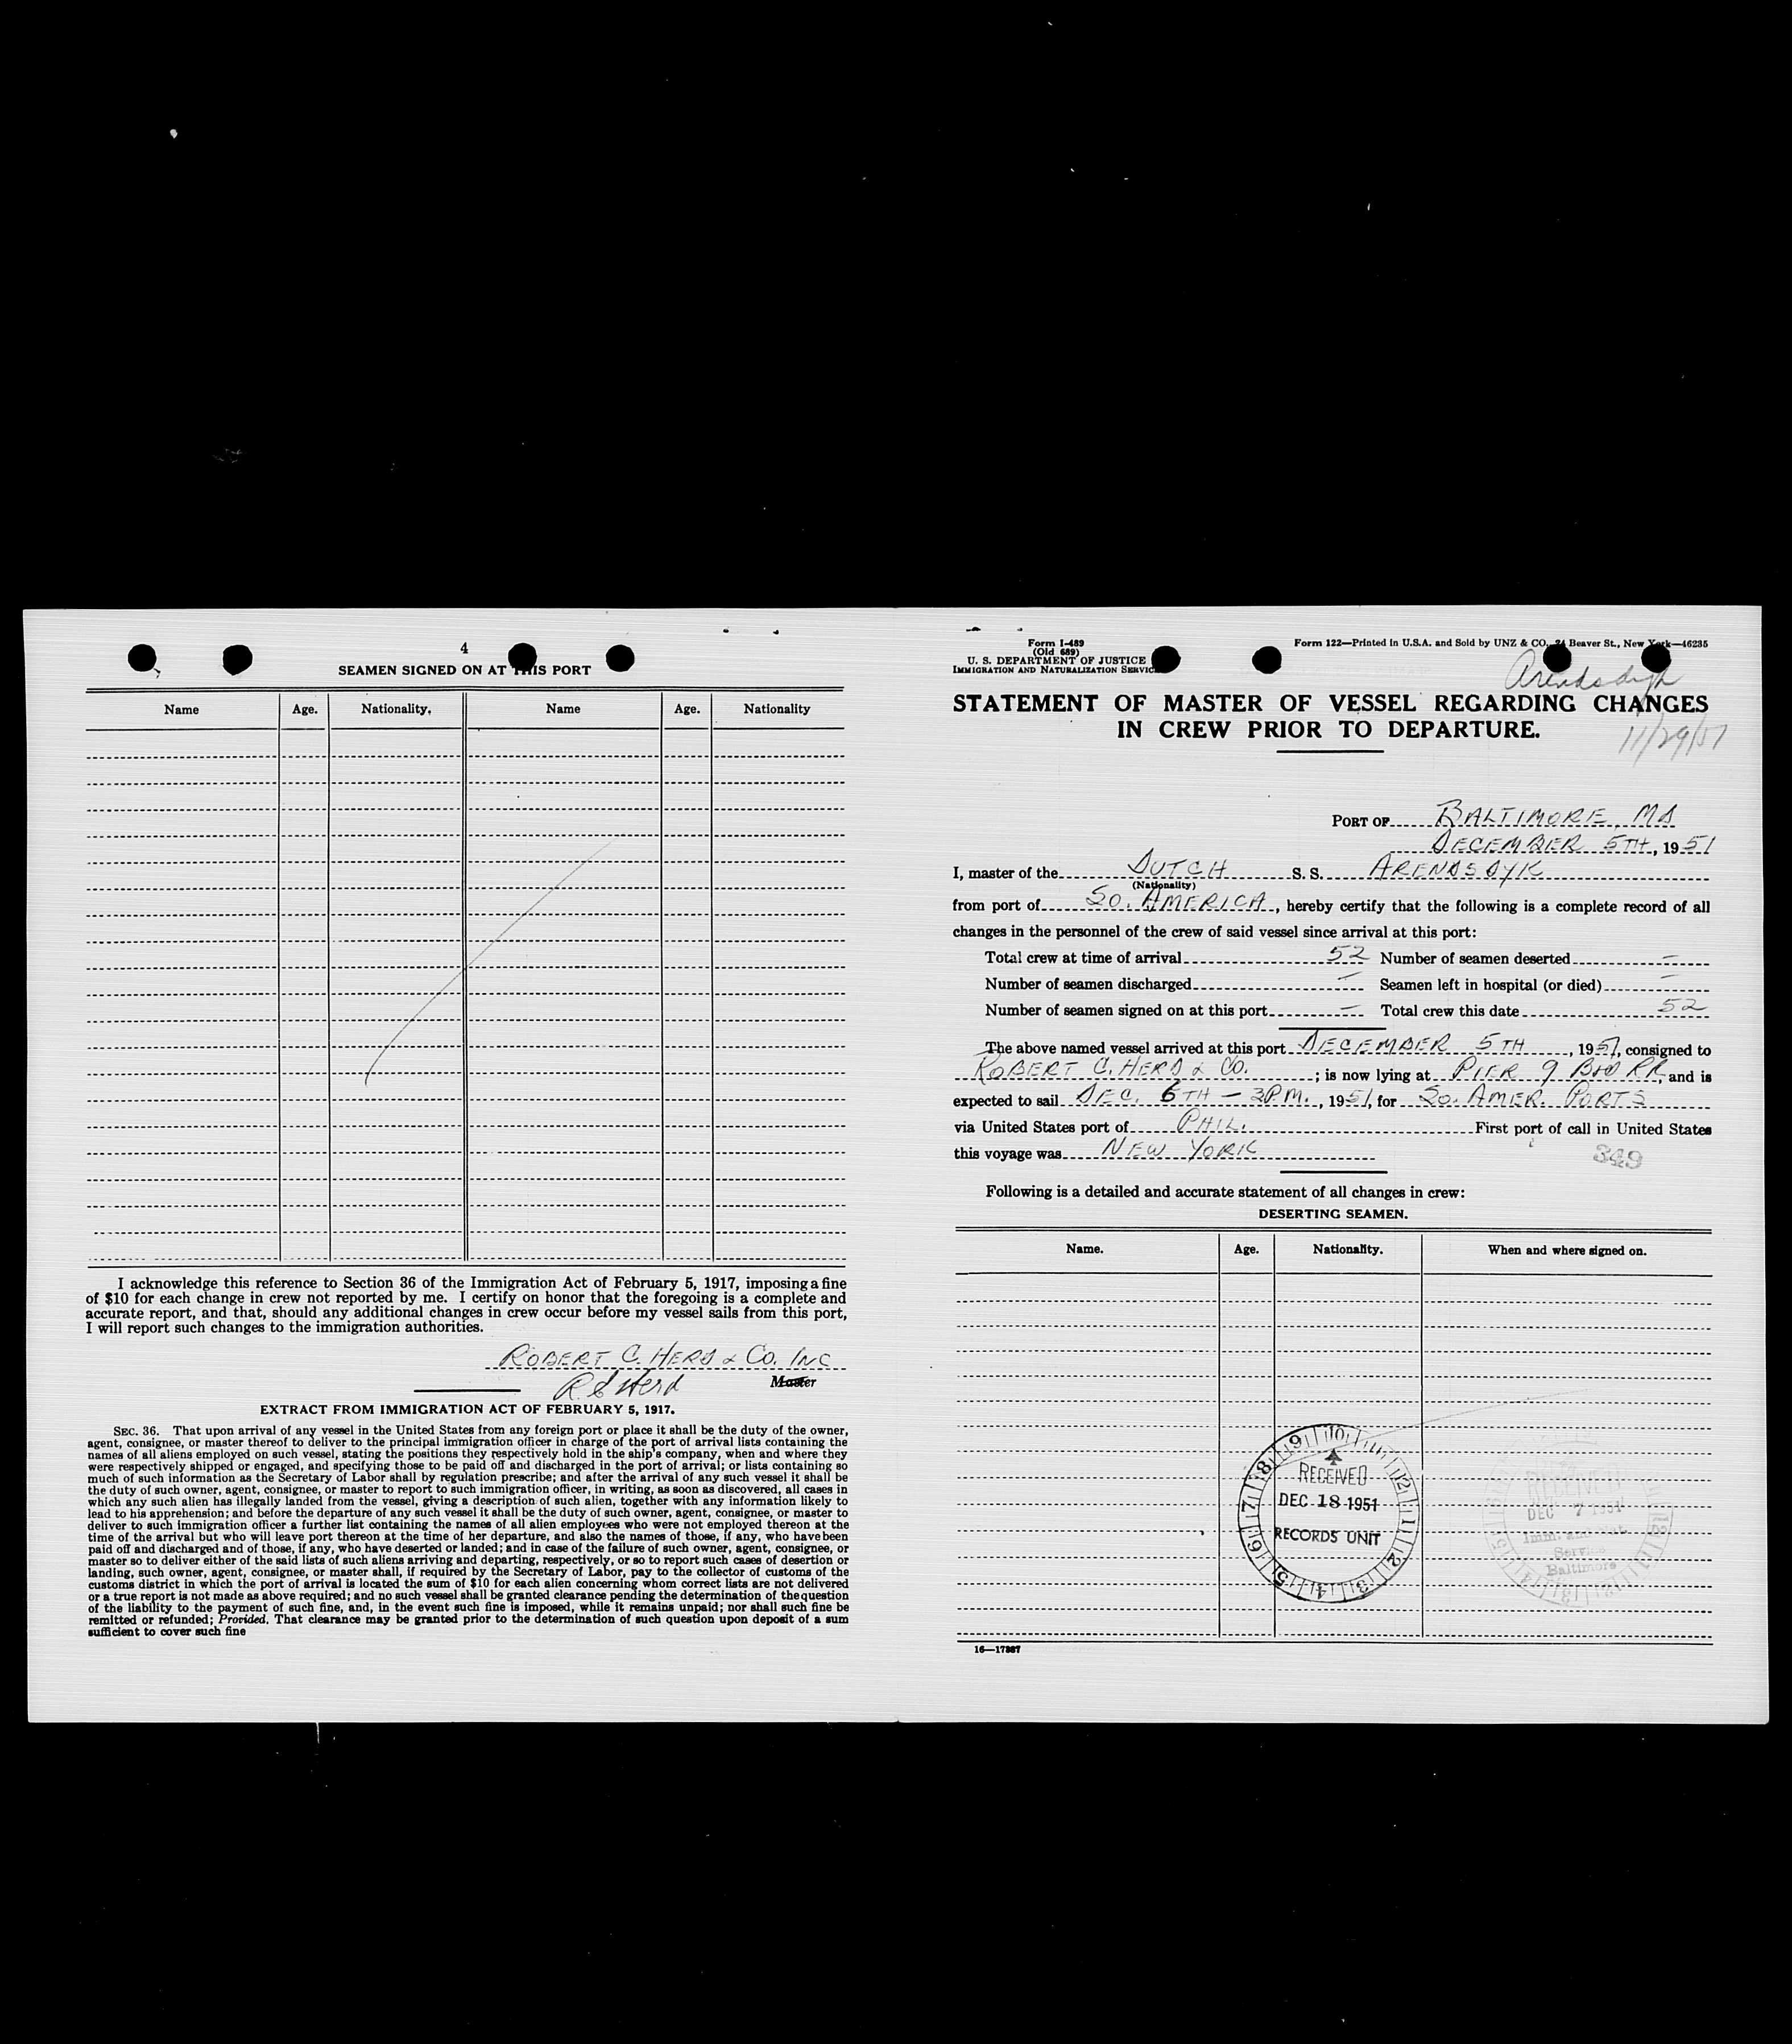 4
SEAMEN SIGNED ON AT THIS PORT
Name Age. Nationality. Name Age. Nationality
I acknowledge this reference to Section 36 of the Immigration Act of February 5, 1917, imposing a fine
of $10 for each change in crew not reported by me. I certify on honor that the foregoing is a complete and
accurate report, and that, should any additional changes in crew occur before my vessel sails from this port,
I will report such changes to the immigration authorities.
ROBERT C. HERD & CO. INC
Master
EXTRACT FROM IMMIGRATION ACT OF FEBRUARY 5, 1917.
SEC. 36. That upon arrival of any vessel in the United States from any foreign port or place it shall be the duty of the owner,
agent, consignee, or master thereof to deliver to the principal immigration officer in charge of the port of arrival lists containing the
names of all aliens employed on such vessel, stating the positions they respectively hold in the ship's company, when and where they
were respectively shipped or engaged, and specifying those to be paid off and discharged in the port of arrival; or lists containing so
much of such information as the Secretary of Labor shall by regulation prescribe; and after the arrival of any such vessel it shall be
the duty of such owner, agent, consignee, or master to report to such immigration officer, in writing, as soon as discovered, all cases in
which any such alien has illegally landed from the vessel, giving a description of such alien, together with any information likely to
lead to his apprehension; and before the departure of any such vessel it shall be the duty of such owner, agent, consignee, or master to
deliver to such immigration officer a further list containing the names of all alien employees who were not employed thereon at the
time of the arrival but who will leave port thereon at the time of her departure, and also the names of those, if any, who have been
paid off and discharged and of those, if any, who have deserted or landed; and in case of the failure of such owner, agent, consignee, or
master so to deliver either of the said lists of such aliens arriving and departing, respectively, or so to report such cases of desertion or
landing, such owner, agent, consignee, or master shall, if required by the Secretary of Labor, pay to the collector of customs of the
customs district in which the port of arrival is located the sum of $10 for each alien concerning whom correct lists are not delivered
or a true report is not made as above required; and no such vessel shall be granted clearance pending the determination of the question
of the liability to the payment of such fine, and, in the event such fine is imposed, while it remains unpaid; nor shall such fine be
remitted or refunded; Provided, That clearance may be granted prior to the determination of such question upon deposit of a sum
sufficient to cover such fine
Form I-489
(Old 689)
U. S. DEPARTMENT OF JUSTICE
IMMIGRATION AND NATURALIZATION SERVICE
Form 122—Printed in U.S.A. and Sold by UNZ & CO., 24 Beaver St., New York—46235
Arendsdyk
STATEMENT OF MASTER OF VESSEL REGARDING CHANGES
IN CREW PRIOR TO DEPARTURE.
11/29/51
PORT OF BALTIMORE, MD
DECEMBER 5TH, 1951
I, master of the DUTCH S. S. ARENDSDYK
(Nationality)
from port of SO. AMERICA, hereby certify that the following is a complete record of all
changes in the personnel of the crew of said vessel since arrival at this port:
Total crew at time of arrival 52 Number of seamen deserted —
Number of seamen discharged — Seamen left in hospital (or died) —
Number of seamen signed on at this port — Total crew this date 52
The above named vessel arrived at this port DECEMBER 5TH, 1951, consigned to
ROBERT C. HERD & CO.; is now lying at PIER 9 B&O RR, and is
expected to sail DEC. 6TH — 3P.M., 1951, for SO. AMER. PORTS
via United States port of PHIL. First port of call in United States
this voyage was NEW YORK
349
Following is a detailed and accurate statement of all changes in crew:
DESERTING SEAMEN.
Name. Age. Nationality. When and where signed on.
RECEIVED
DEC 18 1951
RECORDS UNIT
RECEIVED
DEC 7 1951
Imm. and Nat.
Service
Baltimore
16—17887